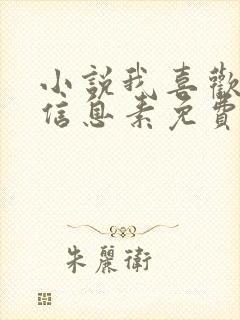 小説我喜歡
信息素免費
朱麗衛